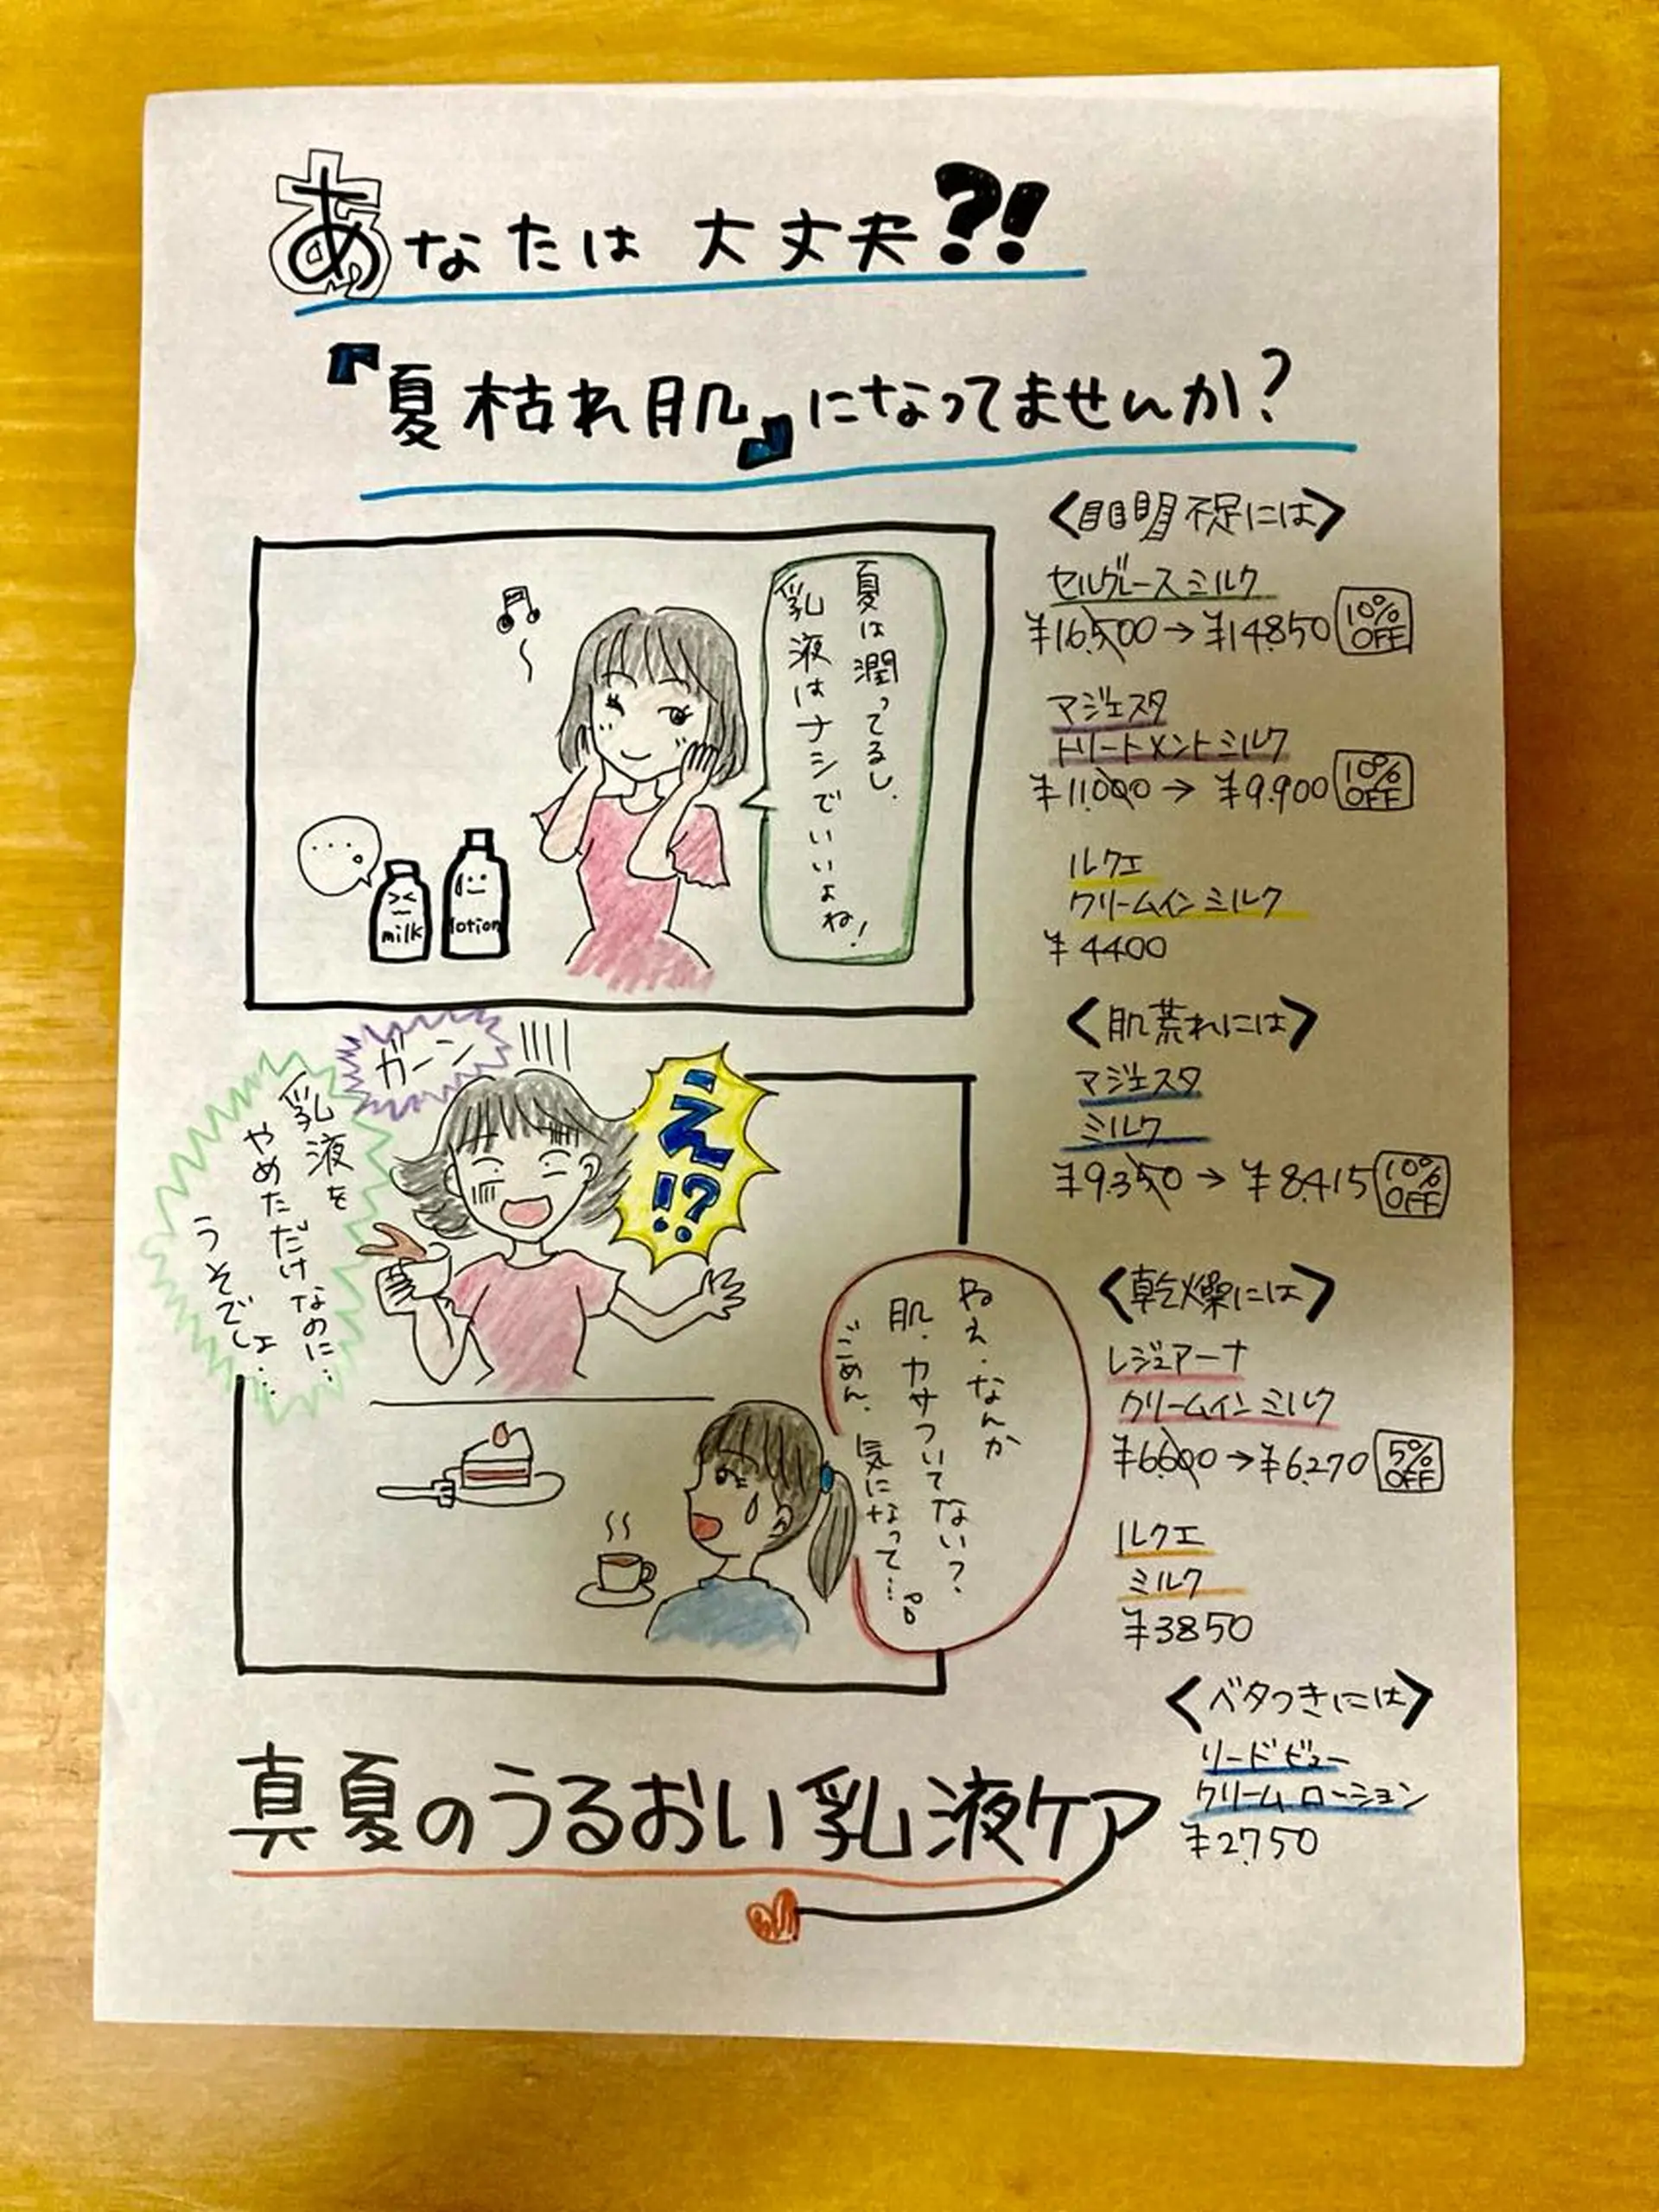 あなたは 大丈夫?!
『夏枯れ肌』になってませんか?
夏は潤ってるし、
乳液はナシでいいよね!
...。
milk
lotion
ガーン
え!?
乳液を
やめただけなのに…
うそでしょ…
ねぇ、なんか
肌、カサついてない?
ごめん、気になって…。
真夏のうるおい乳液ケア
不足には>
セルグレースミルク
¥16,500→¥14,850 10% OFF
マジェスタ
トリートメントミルク
¥11,000→¥9,900 10% OFF
ルクエ
クリームインミルク
¥4400
<肌荒れには>
マジェスタ
ミルク
¥9,350→¥8,415 10% OFF
<乾燥には>
レジュアーナ
クリームインミルク
¥6,600→¥6,270 5% OFF
ルクエ
ミルク
¥3850
<ベタつきには>
リードビュー
クリームローション
¥2,750